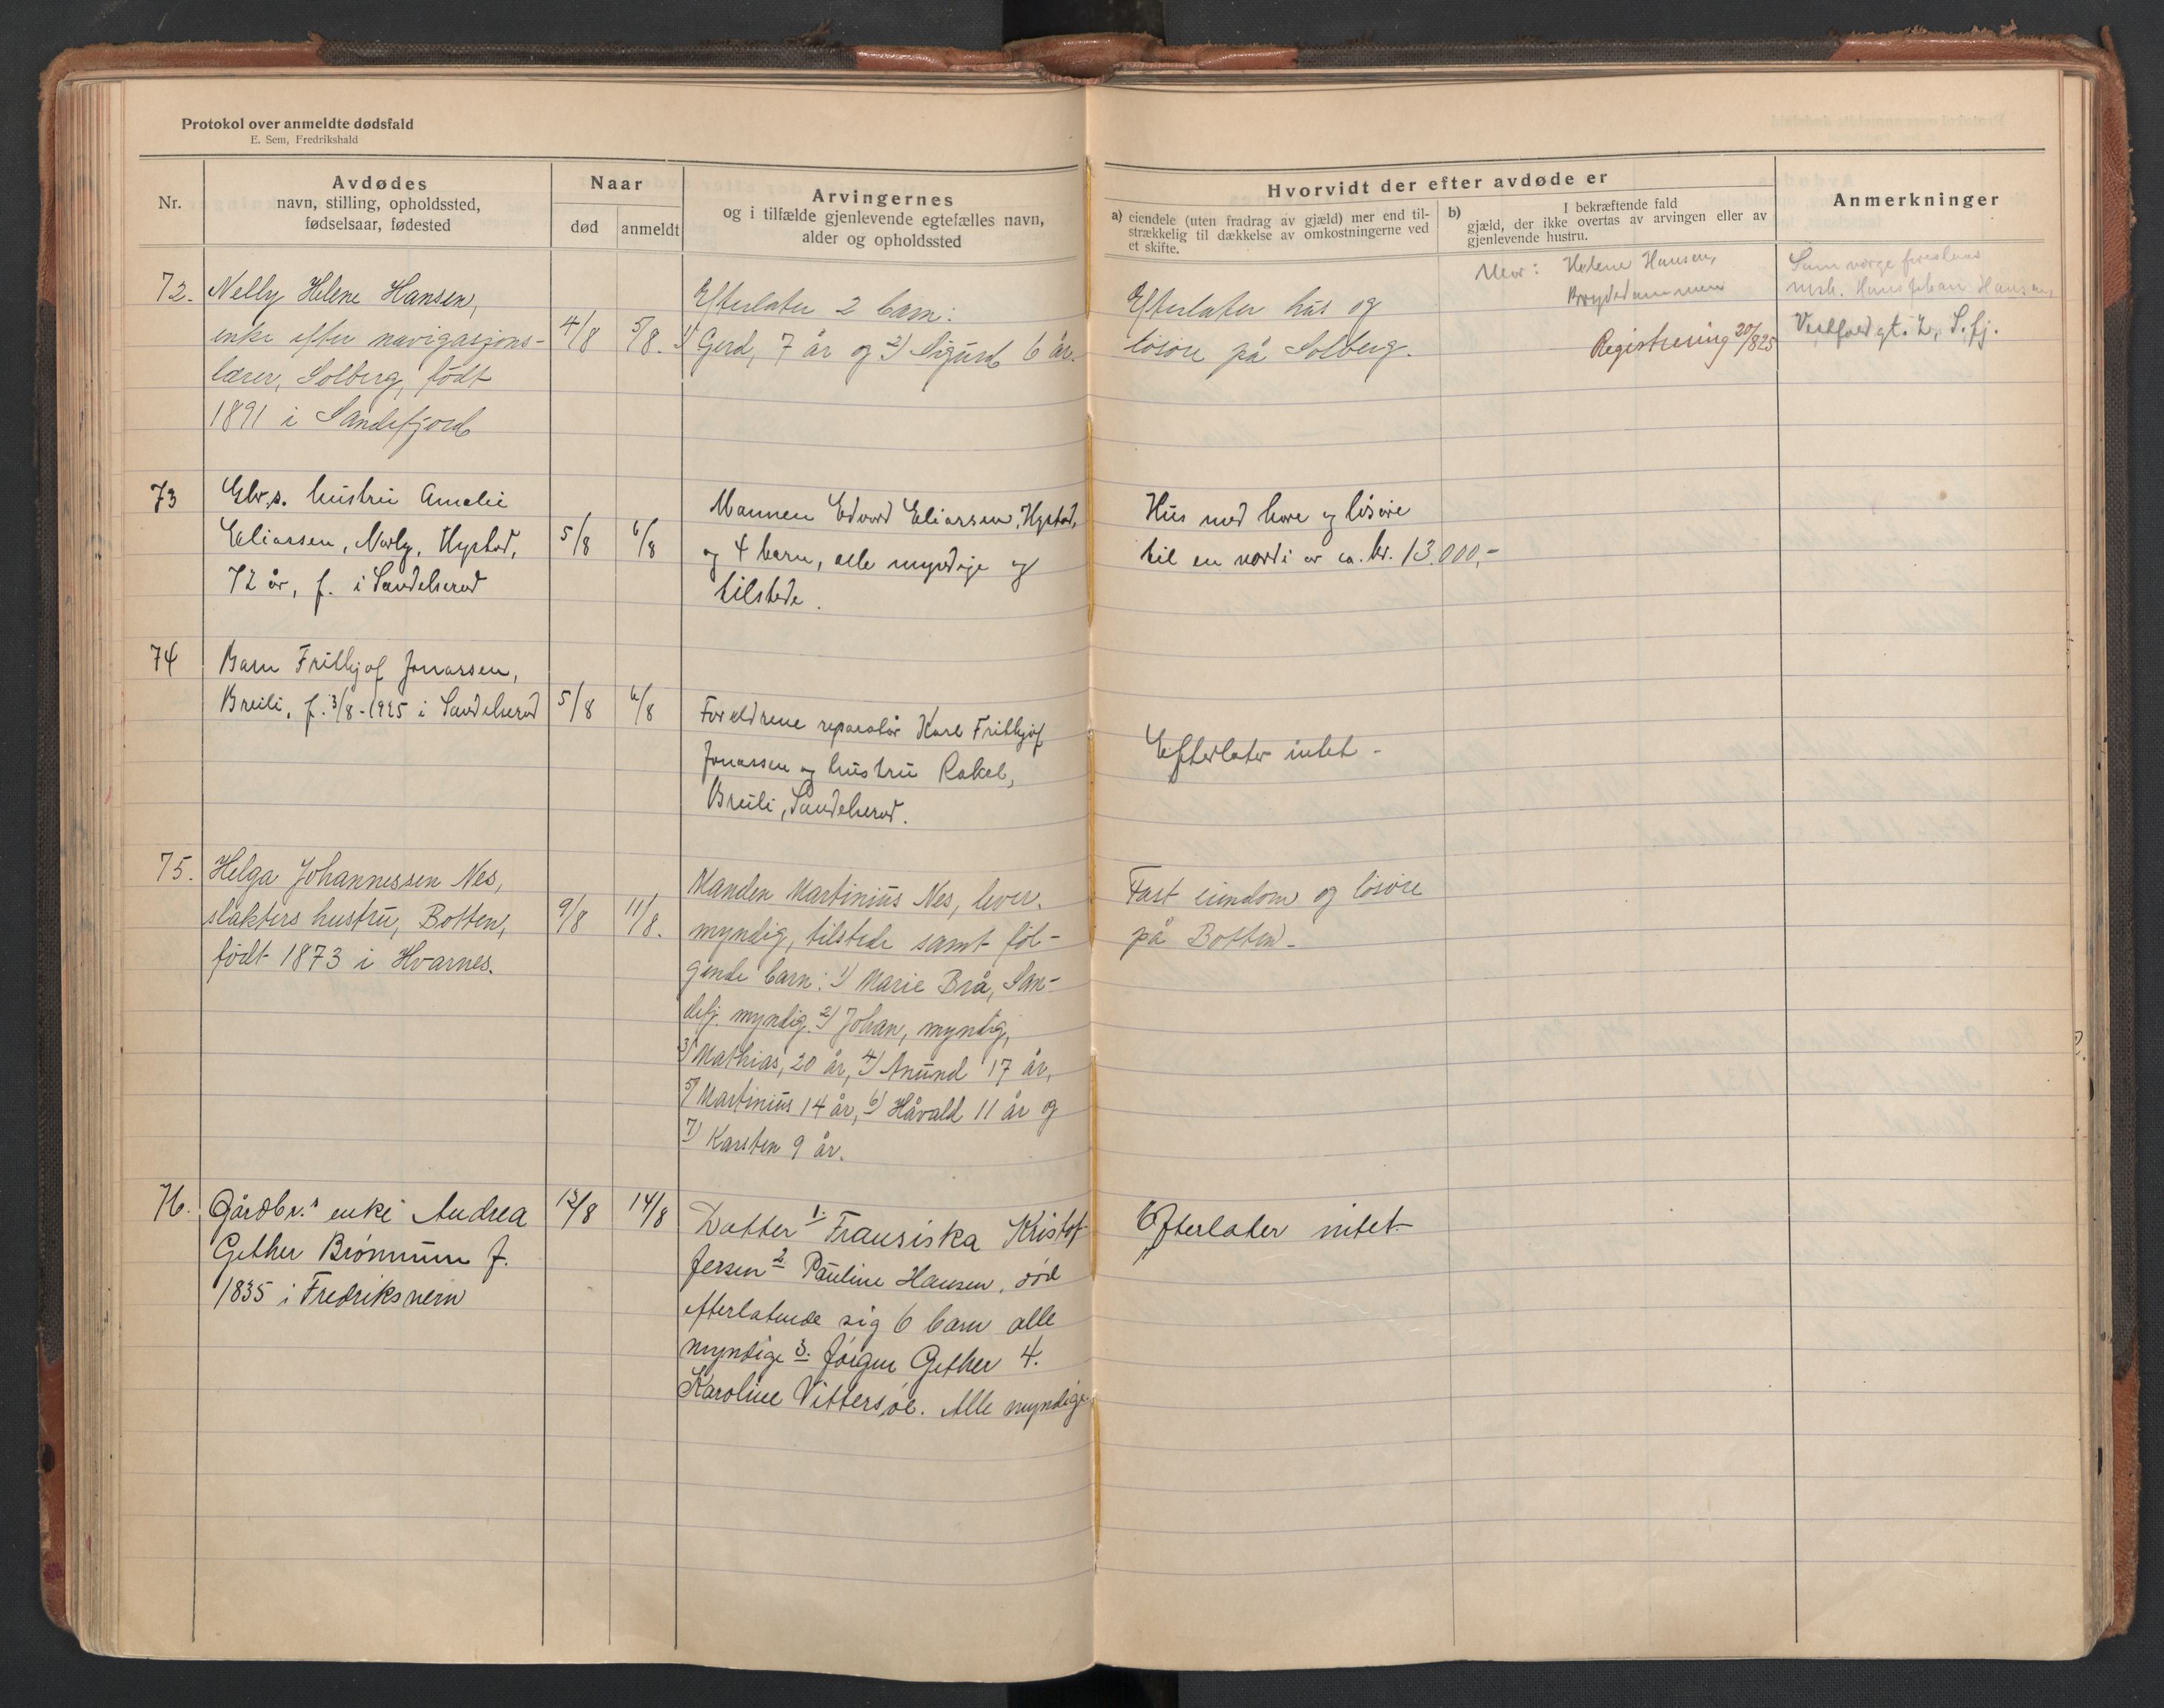 Protokol over anmeldte dødsfald
E. Sem, Fredrikshald
Nr.
Avdødes
navn, stilling, opholdssted,
fødselsaar, fødested
Naar
død
anmeldt
Arvingernes
og i tilfælde gjenlevende egtefælles navn,
alder og opholdssted
Hvorvidt der efter avdøde er
a) eiendele (uten fradrag av gjæld) mer end til-
strækkelig til dækkelse av omkostningerne ved
et skifte.
b) I bekræftende fald
gjæld, der ikke overtas av arvingen eller av
gjenlevende hustru.
Anmerkninger
72. Nelly Helene Hansen,
enke efter navigasjons-
lærer, Solberg, født
1891 i Sandefjord
4/8
5/8.
Efterlater 2 barn:
1) Gerd, 7 år og 2) Sigurd 6 år.
Efterlater hus og
løsøre på Solberg.
Mor: Helene Hansen,
Registrering 20/8 25
Som verge foreslaaes
Hans Johan Hansen,
Vestfoldgt. 2, S.fj.
73 Gbr.s. hustru Amalie
Eliassen, Nordg. Hystad,
72 år, f. i Sandeherad
5/8
6/8
Mannen Edvard Eliassen, Hystad,
og 4 barn, alle myndige og
tilstede.
Hus med have og løsøre
til en verdi av ca. kr. 13.000,-
74 Barn Frithjof Jonassen,
Breili, f. 3/8-1925 i Sandeherad
5/8
6/8
Foreldrene reparatør Karl Frithjof
Jonassen og hustru Rakel,
Breili, Sandeherad.
Efterlater intet -
75. Helga Johannessen Nes,
slakters hustru, Botten,
født 1873 i Hvarnes.
9/8
11/8.
Manden Martinius Nes, lever.
myndig, tilstede samt føl-
gende barn: 1) Marie Brå, San-
defj. myndig. 2) Johan, myndig,
3) Mathias, 20 år, 4) Anund 17 år,
5) Martinius 14 år, 6) Håvald 11 år og
7) Karsten 9 år.
Fast eiendom og løsøre
på Botten -
76. Gårdbr.s enke Andrea
Gether Brønnum f.
1835 i Fredriksvern
13/8
14/8
Datter 1. Fransiska Kristof-
fersen 2. Pauline Hansen, død
efterlatende sig 6 barn alle
myndige 3. Jørgen Gether 4.
Karoline Vittersøe. Alle myndige.
Efterlater intet